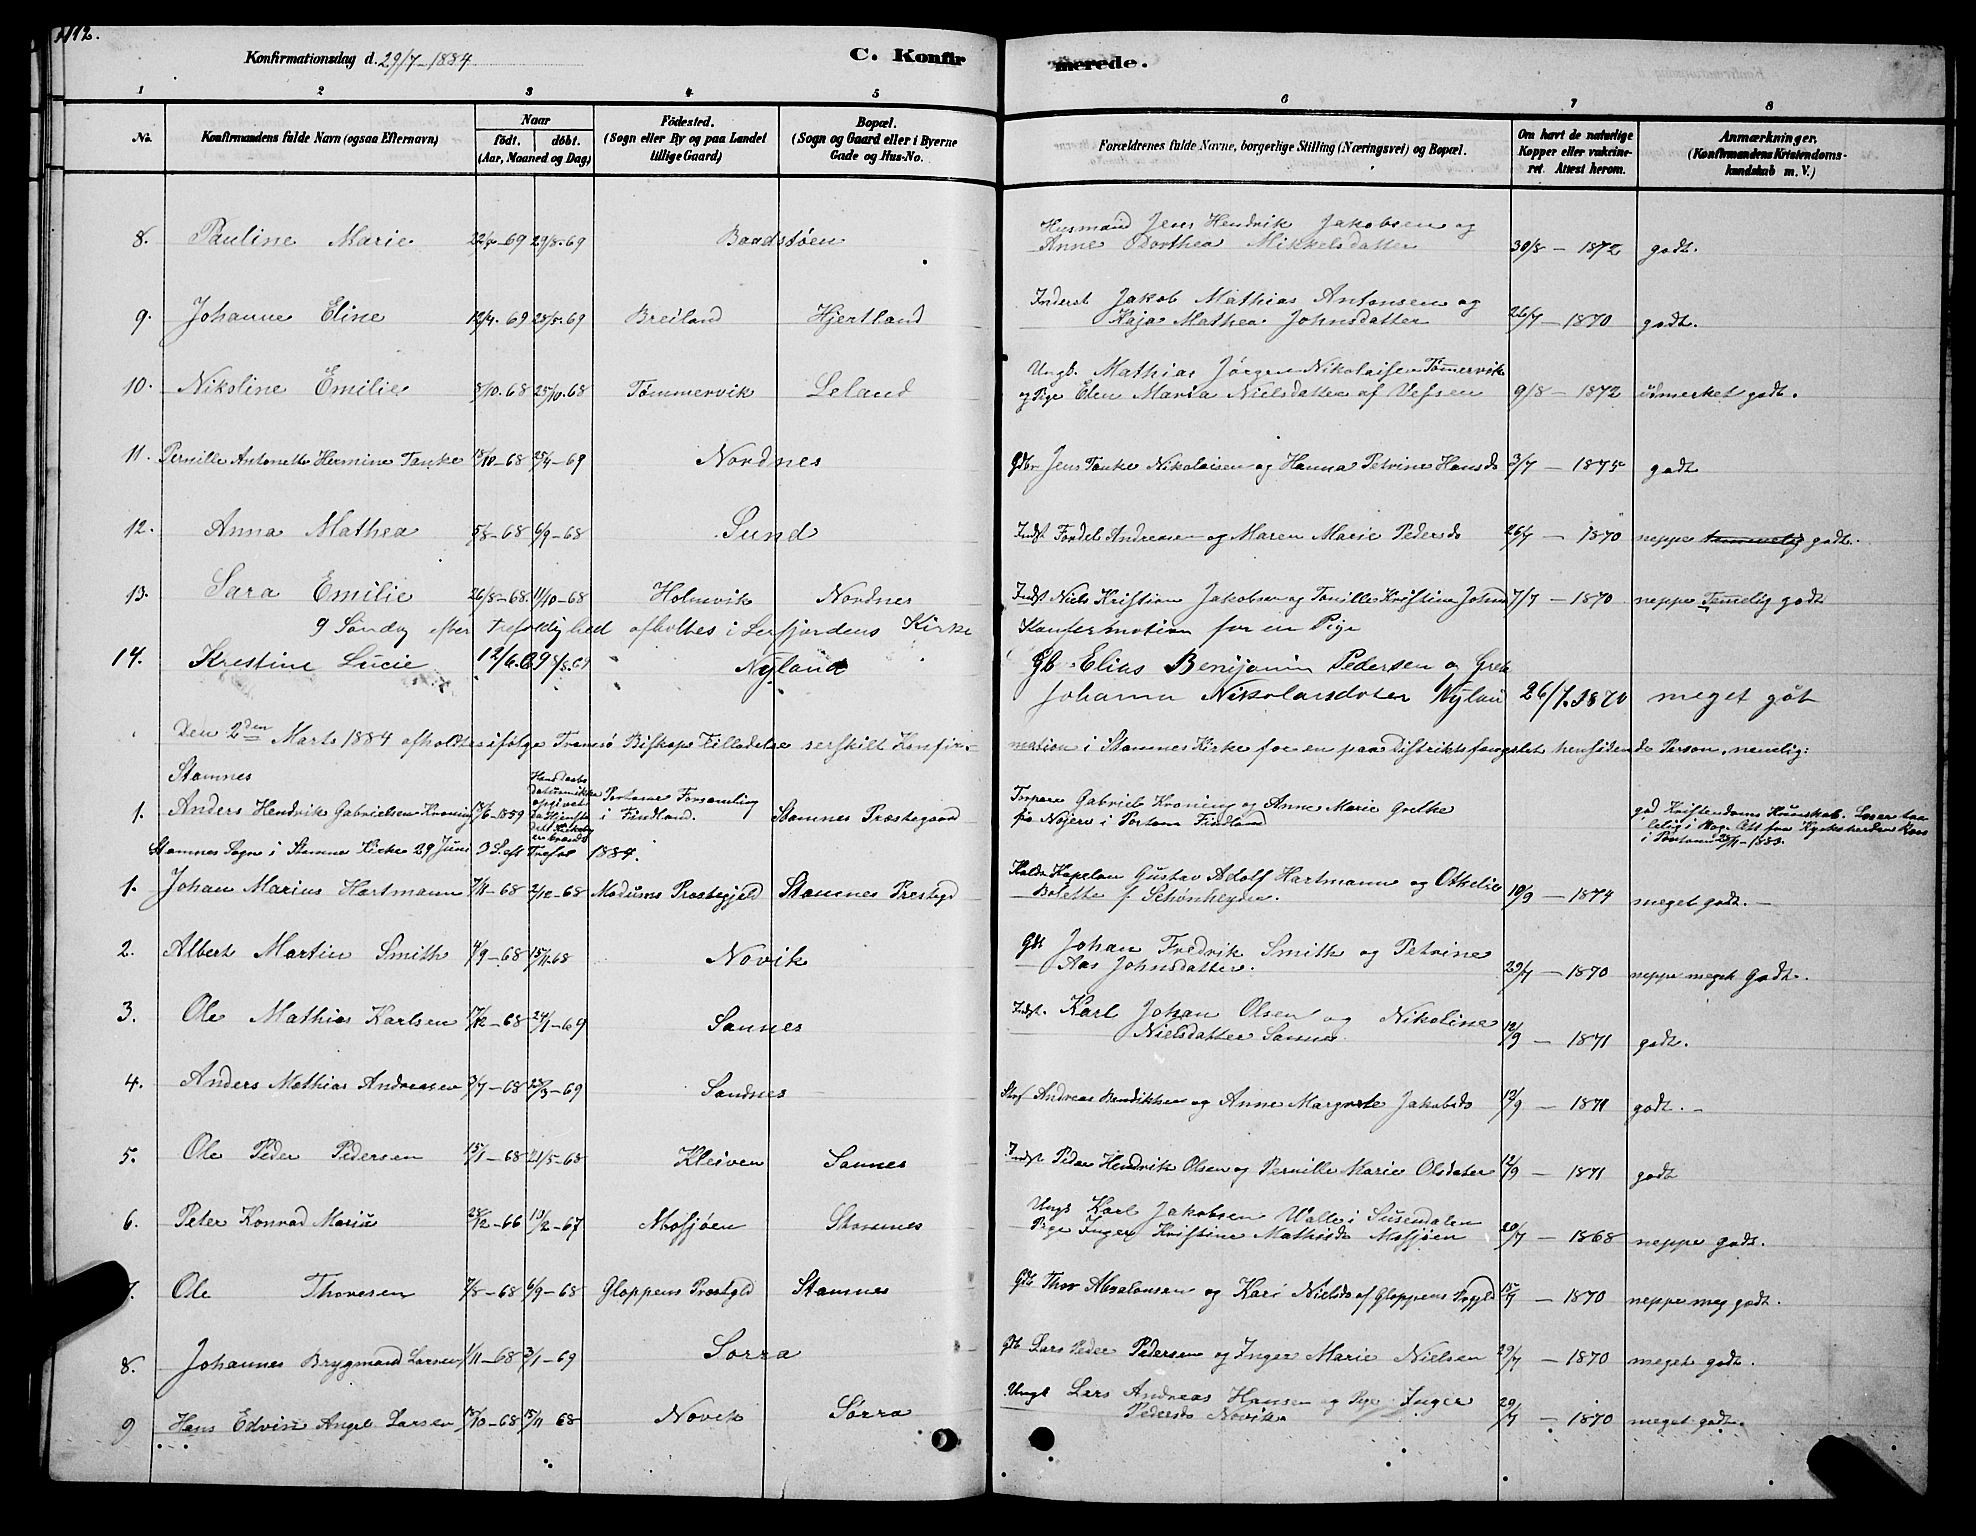 112.
Konfirmationsdag d. 29/7-1884
C. Konfirmerede.
1 2 3 4 5 6 7 8
No.
Konfirmandens fulde Navn (ogsaa Efternavn)
Naar
født. døbt.
(Aar, Maaned og Dag)
Fødested.
(Sogn eller By og paa Landet
tillige Gaard)
Bopæl.
(Sogn og Gaard eller i Byerne
Gade og Hus-No.
Forældrenes fulde Navne, borgerlige Stilling (Næringsvei) og Bopæl.
Om havt de naturlige
Kopper eller vakcine-
ret. Attest herom.
Anmærkninger.
(Konfirmandens Kristendoms-
kundskab m. V.)
Husmand Jens Hendrik Jakobsen og
8. Pauline Marie 29/8-69 Baadstøen Anne Dorthea Mikkelsdatter 30/8 - 1872 godt.
Inderst Jakob Mathias Antonsen og
9. Johanne Eline 12/4-69 25/5-69 Breiland Hjertland Kaja Mathea Johnsdatter 26/7 - 1870 godt.
Ungk. Mathias Jørgen Nikolaisen Tømmervik
10. Nikoline Emilie 8/10-68 25/10-68 Tømmervik Leland og Pige Elen Maria Nielsdatter af Vefsen 9/8 - 1872 udmerket godt.
11. Pernille Antonette Hermine Tanke 18/10-68 25/4-69 Nordnes Gdbr Jens Tanke Nikolaisen og Hanna Petrine Hansd 3/7 - 1875 godt
12. Anna Mathea 5/8-68 6/9-68 Sund Indst Andreasen og Maren Marie Pedersd 26/7 - 1870 neppe temmelig godt.
13. Sara Emilie 26/8-68. 11/10-68 Holmvik Nordnes Indst Niels Kristian Jakobsen og Kristine 7/7 - 1870 neppe Temelig godt
9 Søndg efter trefoldighed afholtes i Lerfjordens Kirke Konfermation for en Pige
14. Krestine Lucie 12/6.69 Nyland Gb. Elias Benijamin Pedersen og
Johanna Nikolaisdater 26/7.1870 meget gåt
Den 2den Marts 1884 afholdtes ifølge Tromsø Biskops Tilladelse serskilt Konfirmation i Stamnes Kirke for en paa Distriktsfængslet hensidende Person, nemlig:
Stamnes
1. Anders Hendrik Gabrielsen Kroning 18/6-1859 Portome Forsamling
i Findland. Stamnes Præstegaard
Torpare Gabriel Kroning og Anne Marie Grethe
paa i Portom Findland
god Kristendoms Kundskab.
Stamnes Sogn i Stamnes Kirke 29 Juni 3 S. eft Trefol 1884.
1. Johan Marius Hartmann 7/11-68 2/12-68 Modums Prestegjeld Stamnes Prestegd Kapelan Gustav Adolf Hartmann og Othelie
Bolette f. Schønheyder. 10/9 - 1874 meget godt.
2. Albert Martin Smith 4/9-68 15/11-68 Novik Gdb Johan Fredrik Smith og Petrine
Aas Johnsdatter. 29/7 - 1870 neppe meget godt.
3. Ole Mathias Karlsen 17/12-68 24/1-69 Sannes Indst. Karl Johan Olsen og Nikoline
Nielsdatter Sannes 12/9 - 1871 godt.
4. Anders Mathias Andreasen 3/7-68 23/3-69 Sandnes Andreas Bendikksen og Anne Margrete Jakobsd 12/9 - 1871 godt.
5. Ole Peder Pedersen 15/1-68 21/5-68 Kleiven Sannes Indst Peder Hendrik Olsen og Pernille Marie Olsdater 12/9 - 1871 godt
6. Peter Konrad Marius 28/12-66 10/2-67 Mosjøen Stamnes Ungk Karl Jakobsen Valle i Susendalen
Pige Inger Kristine Mathisd Mosjøen 20/7 - 1868 neppe godt.
7. Ole Thoresen 7/8-68 6/9-68 Gloppens Prestgld Stamnes Gdb Thor Absalonsen og Kari Nielsd af Gloppens Prgjld 15/9 - 1870 neppe meg godt.
8. Johannes Brygmand Larsen 1/11-68 3/1-69 Sørra Gdb Lars Peder Pedersen og Inger Marie Nielsen 29/7 - 1870 meget godt.
9 Hans Edvin Angel Larsen 18/10-68 15/11 68 Novik Sørra Ungk Lars Andreas Hansen og Pige Inger
Pedersd Novikn 29/7 - 1870 meget godt.